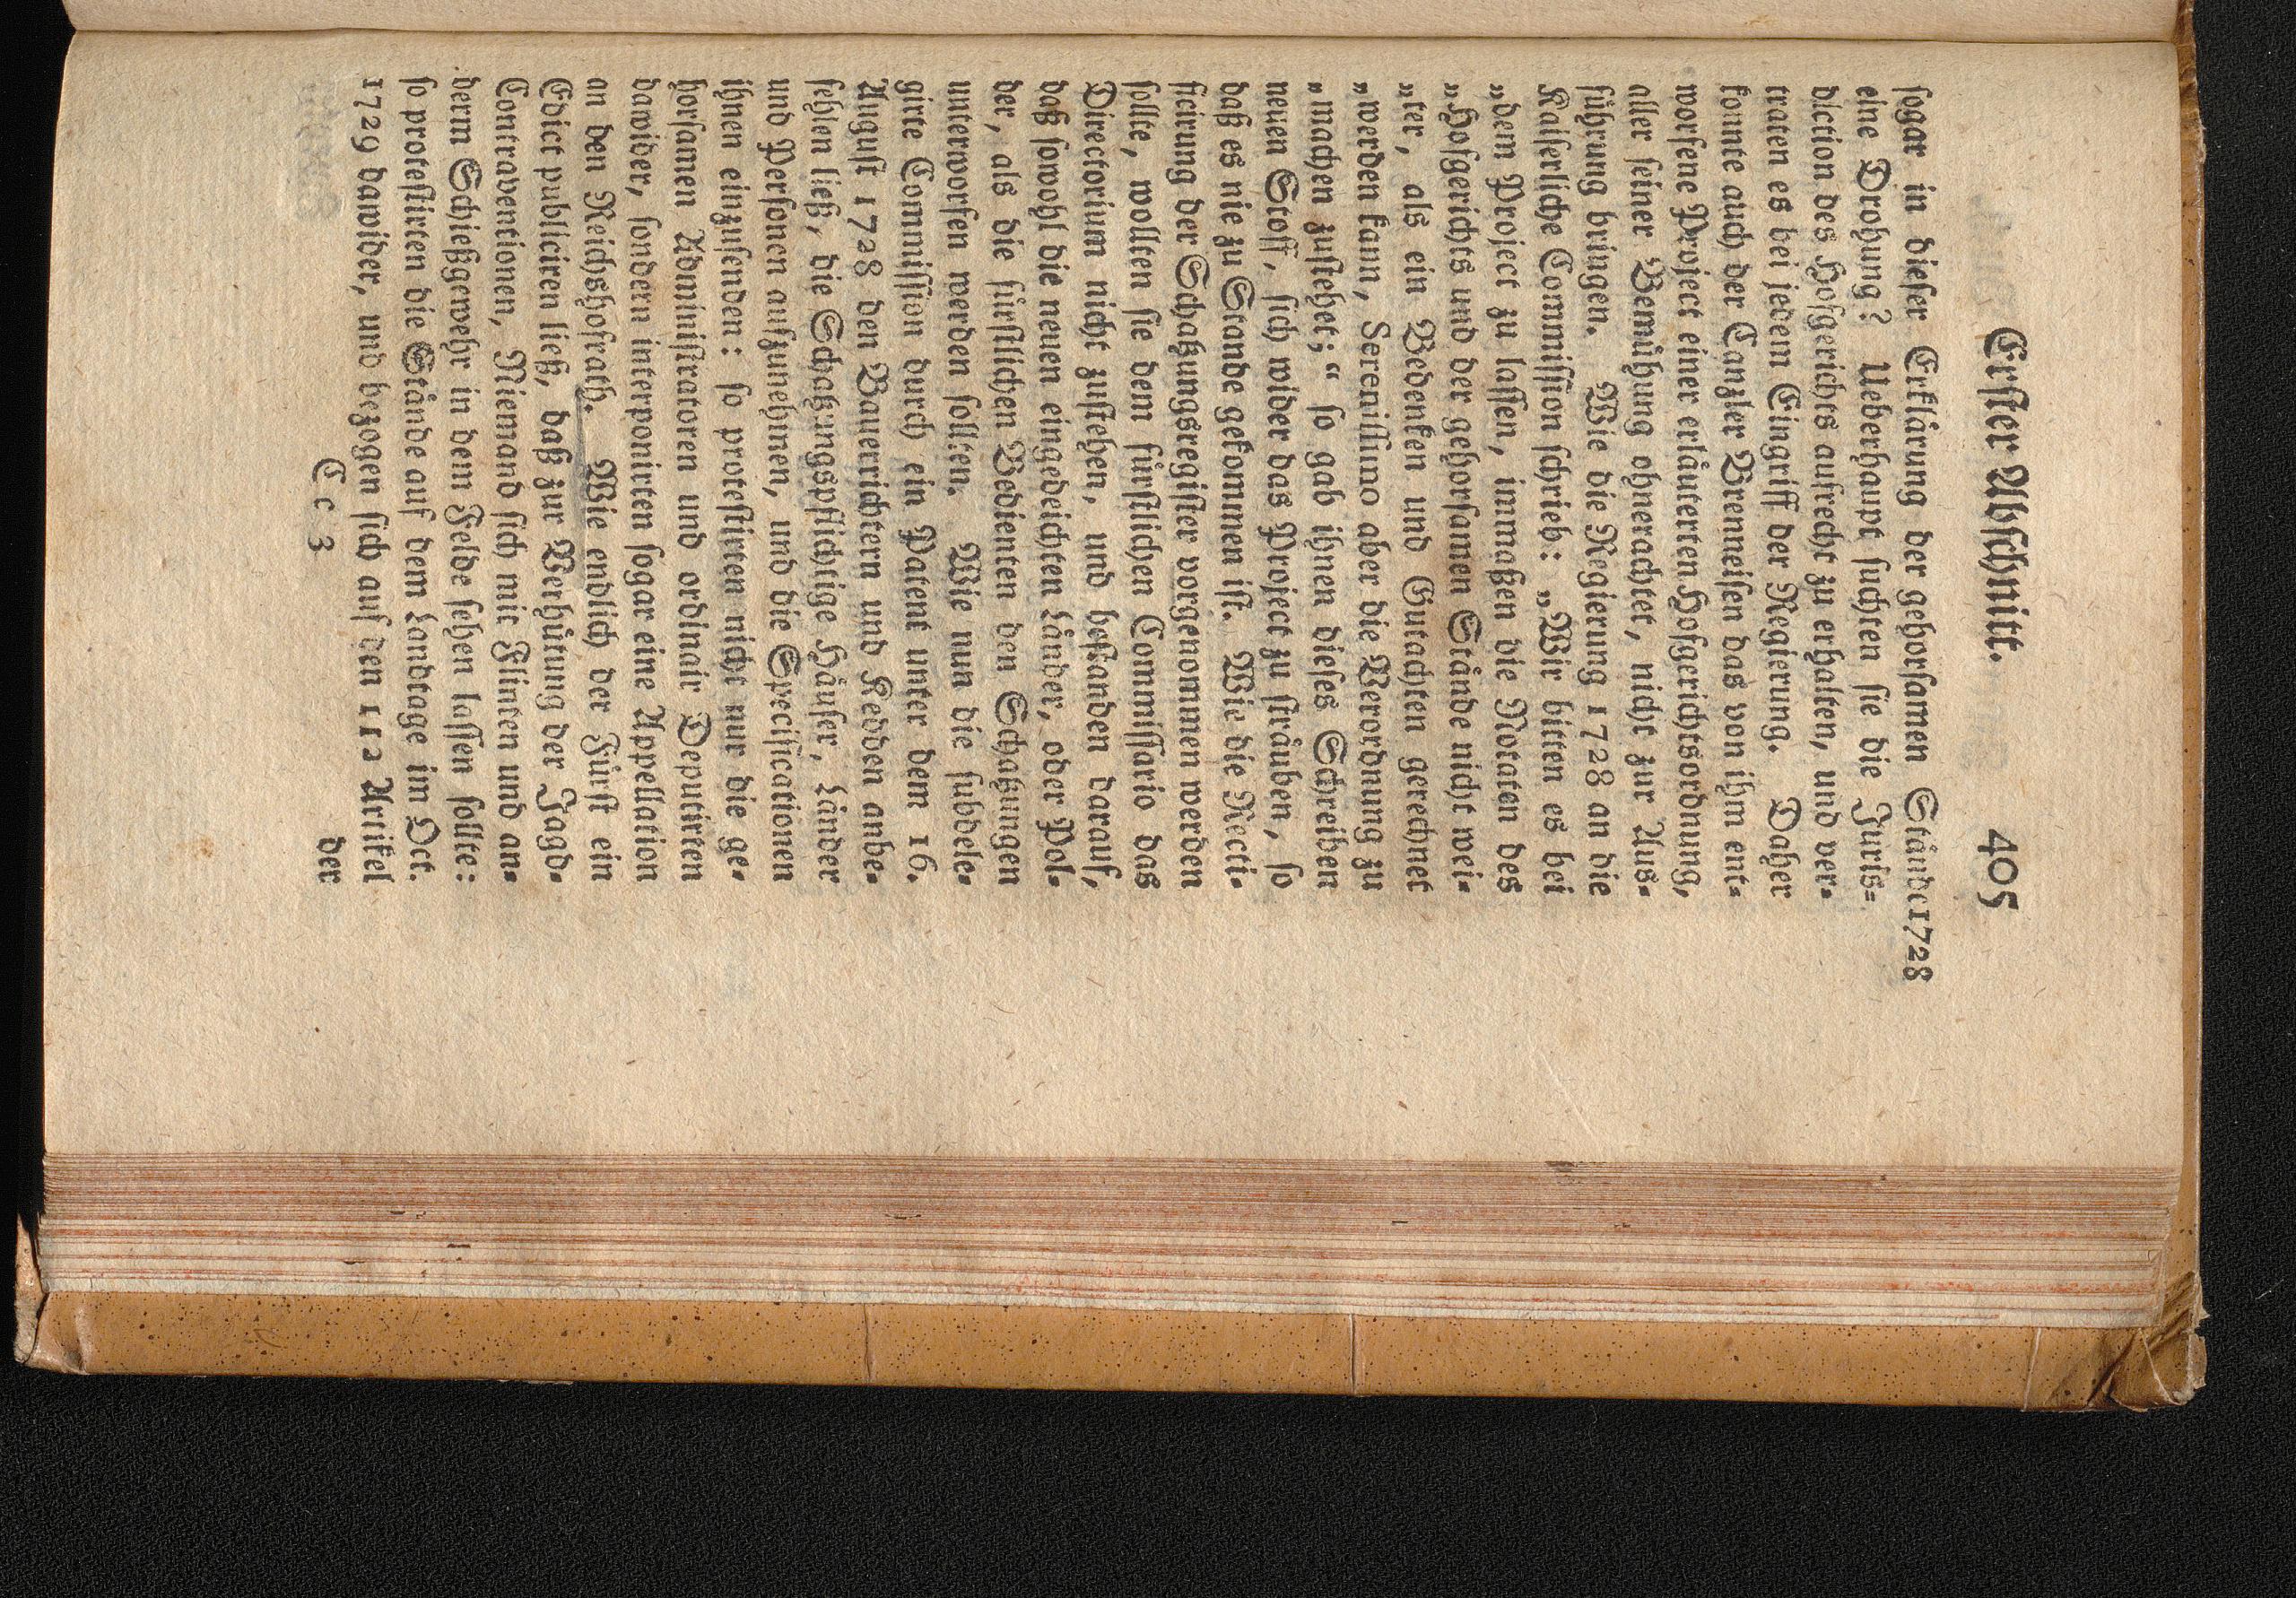 Erster Abschnitt. 405
sogar in dieser Erklärung der gehorsamen Stände 1728
eine Drohung? Ueberhaupt suchten sie die Juris-
diction des Hofgerichts aufrecht zu erhalten, und ver-
traten es bei jedem Eingriff der Regierung. Daher
konnte auch der Canzler Brenneisen das von ihm ent-
worfene Project einer erläuterten Hofgerichtsordnung,
aller seiner Bemühung ohnerachtet, nicht zur Aus-
führung bringen. Wie die Regierung 1728 an die
Kaiserliche Commission schrieb: „Wir bitten es bei
„dem Project zu lassen, immaßen die Notaten des
„Hofgerichts und der gehorsamen Stände nicht wei-
„ter, als ein Bedenken und Gutachten gerechnet
„werden kann, Serenissimo aber die Verordnung zu
„machen zustehet;“ so gab ihnen dieses Schreiben
neuen Stoff, sich wider das Project zu sträuben, so
daß es nie zu Stande gekommen ist. Wie die Recti-
ficirung der Schatzungsregister vorgenommen werden
sollte, wollten sie dem fürstlichen Commissario das
Directorium nicht zustehen, und bestanden darauf,
daß sowohl die neuen eingedeichten Länder, oder Pol-
der, als die fürstlichen Bedienten den Schatzungen
unterworfen werden sollten. Wie nun die subdele-
girte Commission durch ein Patent unter dem 16.
August 1728 den Bauerrichtern und Kedden anbe-
fehlen ließ, die Schatzungspflichtige Häuser, Länder
und Personen aufzunehmen, und die Specificationen
ihnen einzusenden: so protestirten nicht nur die ge-
horsamen Administratoren und ordinair Deputirten
dawider, sondern interponirten sogar eine Appellation
an den Reichshofrath. Wie endlich der Fürst ein
Edict publiciren ließ, daß zur Verhütung der Jagd-
Contraventionen, Niemand sich mit Flinten und an-
derm Schießgewehr in dem Felde sehen lassen sollte:
so protestirten die Stände auf dem Landtage im Oct.
1729 dawider, und bezogen sich auf den 112 Artikel
C c 3 der